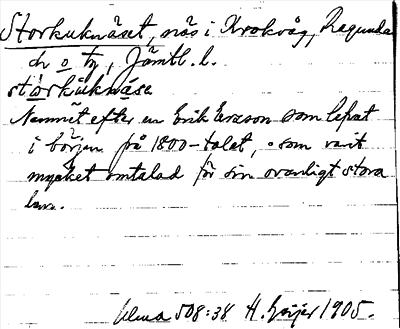 Storkuknäset, näs i Krokvåg, Ragunda
sn o. tg, Jämtl. l.
stórkùknä̀se
Namnet efter en Erik Ersson som lefvat
i början på 1800-talet, o som varit
mycket omtalad för sin ovanligt stora
Ulma 508:38 H. Geijer 1905.